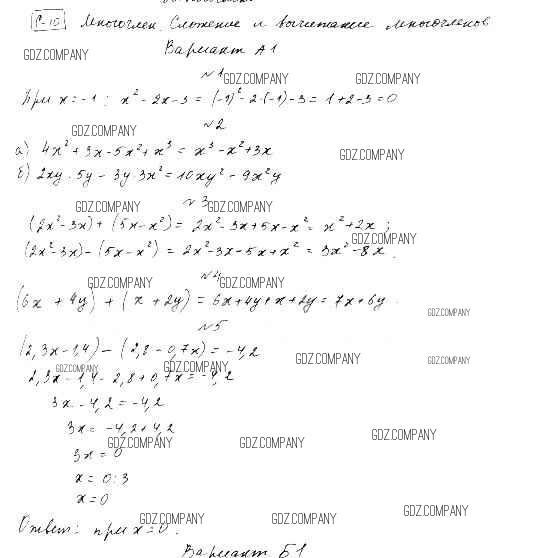 Р-10 Многочлен. Сложение и вычитание многочленов
Вариант А1
GDZ.COMPANY
№1
GDZ.COMPANY GDZ.COMPANY
При x = -1 : x² - 2x - 3 = (-1)² - 2·(-1) - 3 = 1 + 2 - 3 = 0
№2
GDZ.COMPANY
а) 4x² + 3x - 5x² + x³ = x³ - x² + 3x
GDZ.COMPANY
б) 2xy · 5y - 3y · 3x² = 10xy² - 9x²y
№3
GDZ.COMPANY GDZ.COMPANY
(2x² - 3x) + (5x - x²) = 2x² - 3x + 5x - x² = x² + 2x ;
GDZ.COMPANY
(2x² - 3x) - (5x - x²) = 2x² - 3x - 5x + x² = 3x² - 8x .
№4
GDZ.COMPANY GDZ.COMPANY
(6x + 4y) + (x + 2y) = 6x + 4y + x + 2y = 7x + 6y .
GDZ.COMPANY
№5
(2,3x - 1,4) - (2,8 - 0,7x) = -4,2
GDZ.COMPANY GDZ.COMPANY GDZ.COMPANY GDZ.COMPANY
2,3x - 1,4 - 2,8 + 0,7x = -4,2
3x - 4,2 = -4,2
3x = -4,2 + 4,2
GDZ.COMPANY GDZ.COMPANY GDZ.COMPANY
3x = 0
x = 0 : 3
x = 0
GDZ.COMPANY GDZ.COMPANY GDZ.COMPANY
Ответ: при x = 0 .
Вариант Б1